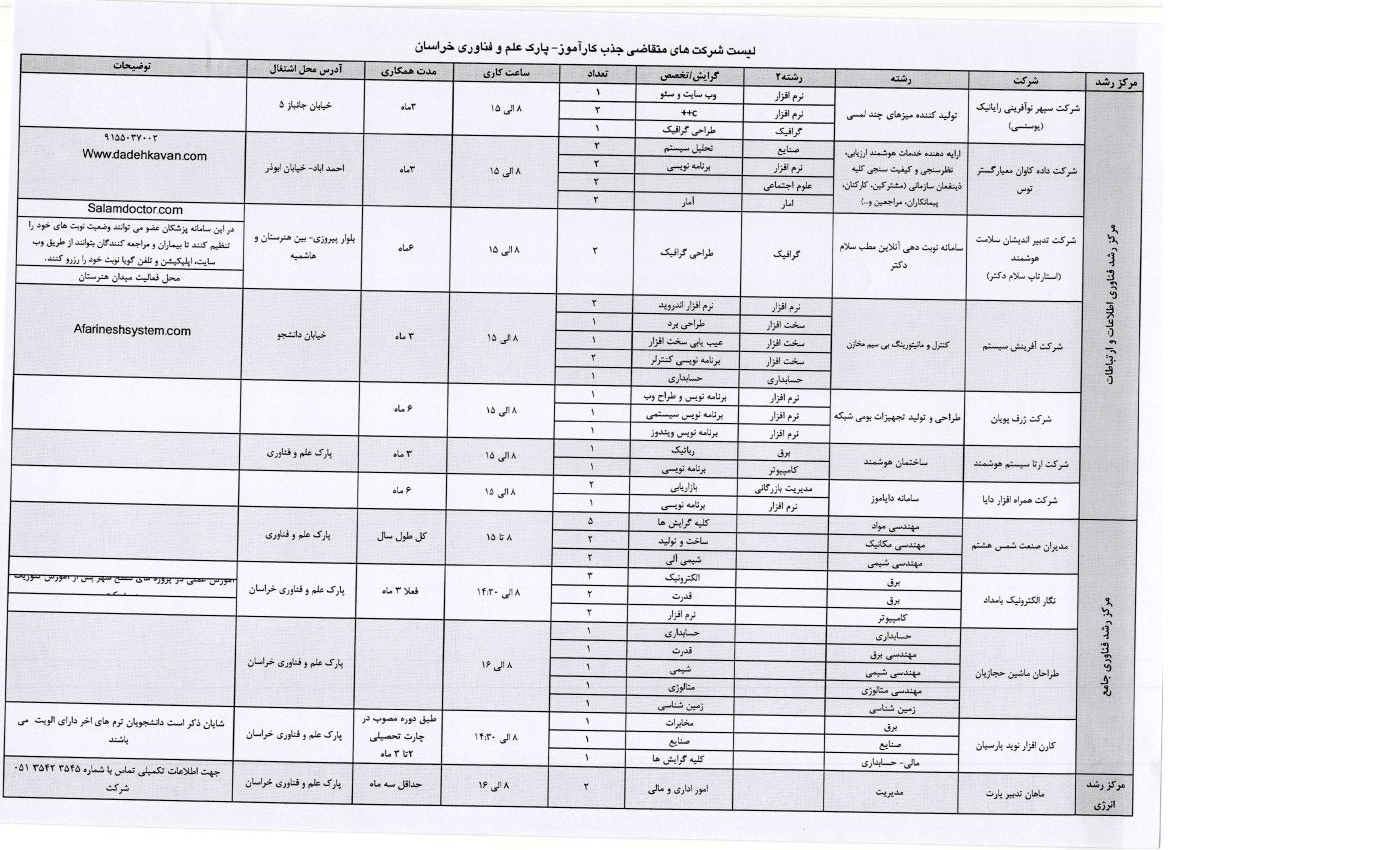 لیست شرکت های متقاضی جذب کارآموز- پارک علم و فناوری خراسان
مرکز رشد شرکت رشته رشته۲ گرایش/تخصص تعداد ساعت کاری مدت همکاری آدرس محل اشتغال توضیحات
مرکز رشد فناوری اطلاعات و ارتباطات
شرکت سپهر نوآفرینی رایانیک
(یوسنسی)
تولید کننده میزهای چند لمسی
نرم افزار وب سایت و سئو ۱
نرم افزار c++ ۲
گرافیک طراحی گرافیک ۱
۸ الی ۱۵ ۳ماه خیابان جانباز ۵
شرکت داده کاوان معیارگستر
توس
ارایه دهنده خدمات هوشمند ارزیابی،
نظرسنجی و کیفیت سنجی کلیه
ذینفعان سازمانی (مشترکین، کارکنان،
پیمانکاران، مراجعین و..)
صنایع تحلیل سیستم ۲
نرم افزار برنامه نویسی ۲
علوم اجتماعی ۲
امار آمار ۲
۸ الی ۱۵ ۳ماه احمد اباد- خیابان ابوذر
۹۱۵۵۰۳۷۰۰۲
Www.dadehkavan.com
شرکت تدبیر اندیشان سلامت
هوشمند
(استارتاپ سلام دکتر)
سامانه نوبت دهی آنلاین مطب سلام
دکتر
گرافیک طراحی گرافیک ۲ ۸ الی ۱۵ ۶ماه
بلوار پیروزی- بین هنرستان و
هاشمیه
Salamdoctor.com
در این سامانه پزشکان عضو می توانند وضعیت نوبت های خود را
تنظیم کنند تا بیماران و مراجعه کنندگان بتوانند از طریق وب
سایت، اپلیکیشن و تلفن گویا نوبت خود را رزرو کنند.
محل فعالیت میدان هنرستان
شرکت آفرینش سیستم کنترل و مانیتورینگ بی سیم مخازن
نرم افزار نرم افزار اندروید ۲
سخت افزار طراحی برد ۱
سخت افزار عیب یابی سخت افزار ۱
سخت افزار برنامه نویسی کنترلر ۲
حسابداری حسابداری ۱
۸ الی ۱۵ ۳ ماه خیابان دانشجو
Afarineshsystem.com
شرکت ژرف پویان طراحی و تولید تجهیزات بومی شبکه
نرم افزار برنامه نویس و طراح وب ۱
نرم افزار برنامه نویس سیستمی ۱
نرم افزار برنامه نویس ویندوز ۱
۸ الی ۱۵ ۶ ماه
شرکت ارتا سیستم هوشمند ساختمان هوشمند
برق رباتیک ۱
کامپیوتر برنامه نویسی ۱
۸ الی ۱۵ ۳ ماه پارک علم و فناوری
شرکت همراه افزار دایا سامانه دایاموز
مدیریت بازرگانی بازاریابی ۲
نرم افزار برنامه نویسی ۱
۸ الی ۱۵ ۶ ماه
مرکز رشد فناوری جامع
مدیران صنعت شمس هشتم
مهندسی مواد کلیه گرایش ها ۵
مهندسی مکانیک ساخت و تولید ۲
مهندسی شیمی شیمی آلی ۲
۸ تا ۱۵ کل طول سال پارک علم و فناوری
نگار الکترونیک بامداد
برق الکترونیک ۳
برق قدرت ۲
کامپیوتر نرم افزار ۲
۸ الی ۱۴:۳۰ فعلا ۳ ماه پارک علم و فناوری خراسان
طراحان ماشین حجازیان
حسابداری حسابداری ۱
مهندسی برق قدرت ۱
مهندسی شیمی شیمی ۱
مهندسی متالوژی متالوژی ۱
زمین شناسی زمین شناسی ۱
۸ الی ۱۶ پارک علم و فناوری خراسان
کارن افزار نوید پارسیان
برق مخابرات ۱
صنایع صنایع ۱
مالی- حسابداری کلیه گرایش ها ۱
۸ الی ۱۴:۳۰
طبق دوره مصوب در
چارت تحصیلی
۲تا ۳ ماه
پارک علم و فناوری خراسان
شایان ذکر است دانشجویان ترم های اخر دارای الویت می
باشند
مرکز رشد
انرژی
ماهان تدبیر پارت مدیریت امور اداری و مالی ۲ ۸ الی ۱۶ حداقل سه ماه پارک علم و فناوری خراسان
جهت اطلاعات تکمیلی تماس با شماره ۳۵۴۵ ۳۵۴۲ ۰۵۱
شرکت